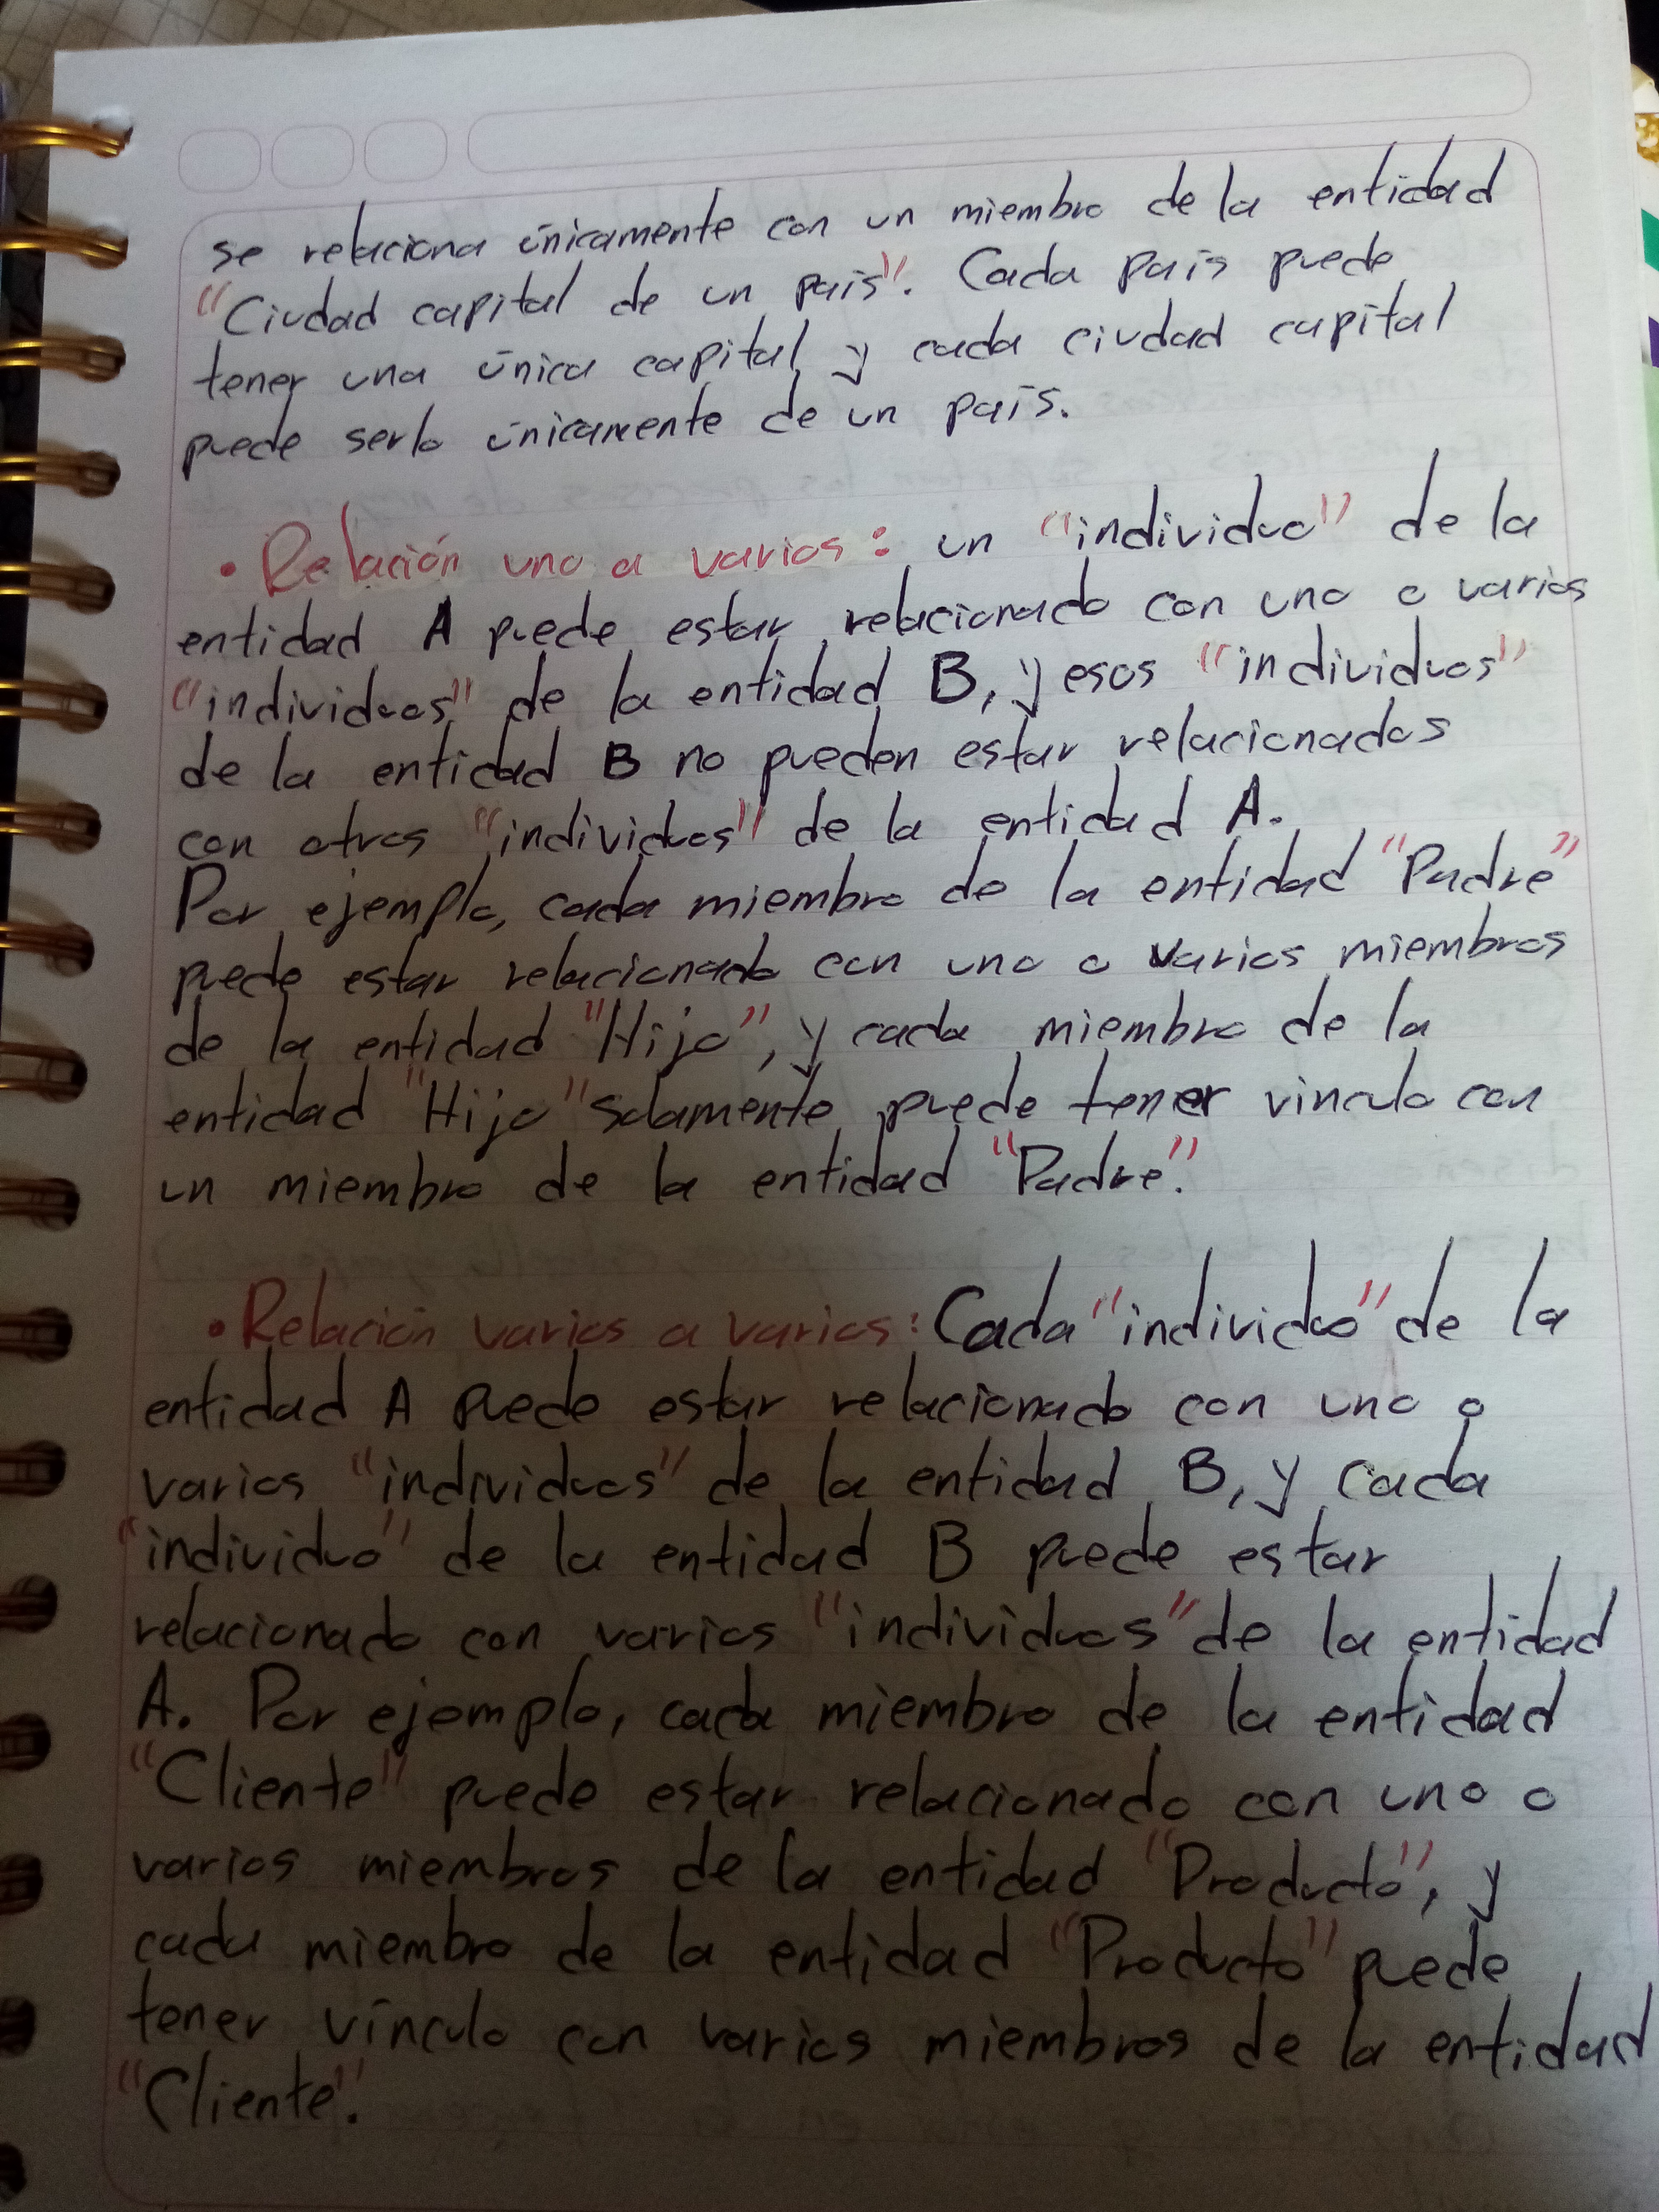 se relaciona únicamente con un miembro de la entidad
"Ciudad capital de un país". Cada país puede
tener una única capital y cada ciudad capital
puede serlo únicamente de un país.
• Relación uno a varios: un "individuo" de la
entidad A puede estar relacionado con uno o varios
"individuos" de la entidad B, y esos "individuos"
de la entidad B no pueden estar relacionados
con otros "individuos" de la entidad A.
Por ejemplo, cada miembro de la entidad "Padre"
puede estar relacionado con uno o varios miembros
de la entidad "Hijo", y cada miembro de la
entidad "Hijo" solamente puede tener vinculo con
un miembro de la entidad "Padre".
• Relación varios a varios: Cada "individuo" de la
entidad A puede estar relacionado con uno o
varios "individuos" de la entidad B, y cada
"individuo" de la entidad B puede estar
relacionado con varios "individuos" de la entidad
A. Por ejemplo, cada miembro de la entidad
"Cliente" puede estar relacionado con uno o
varios miembros de la entidad "Producto", y
cada miembro de la entidad "Producto" puede
tener vínculo con varios miembros de la entidad
"Cliente".